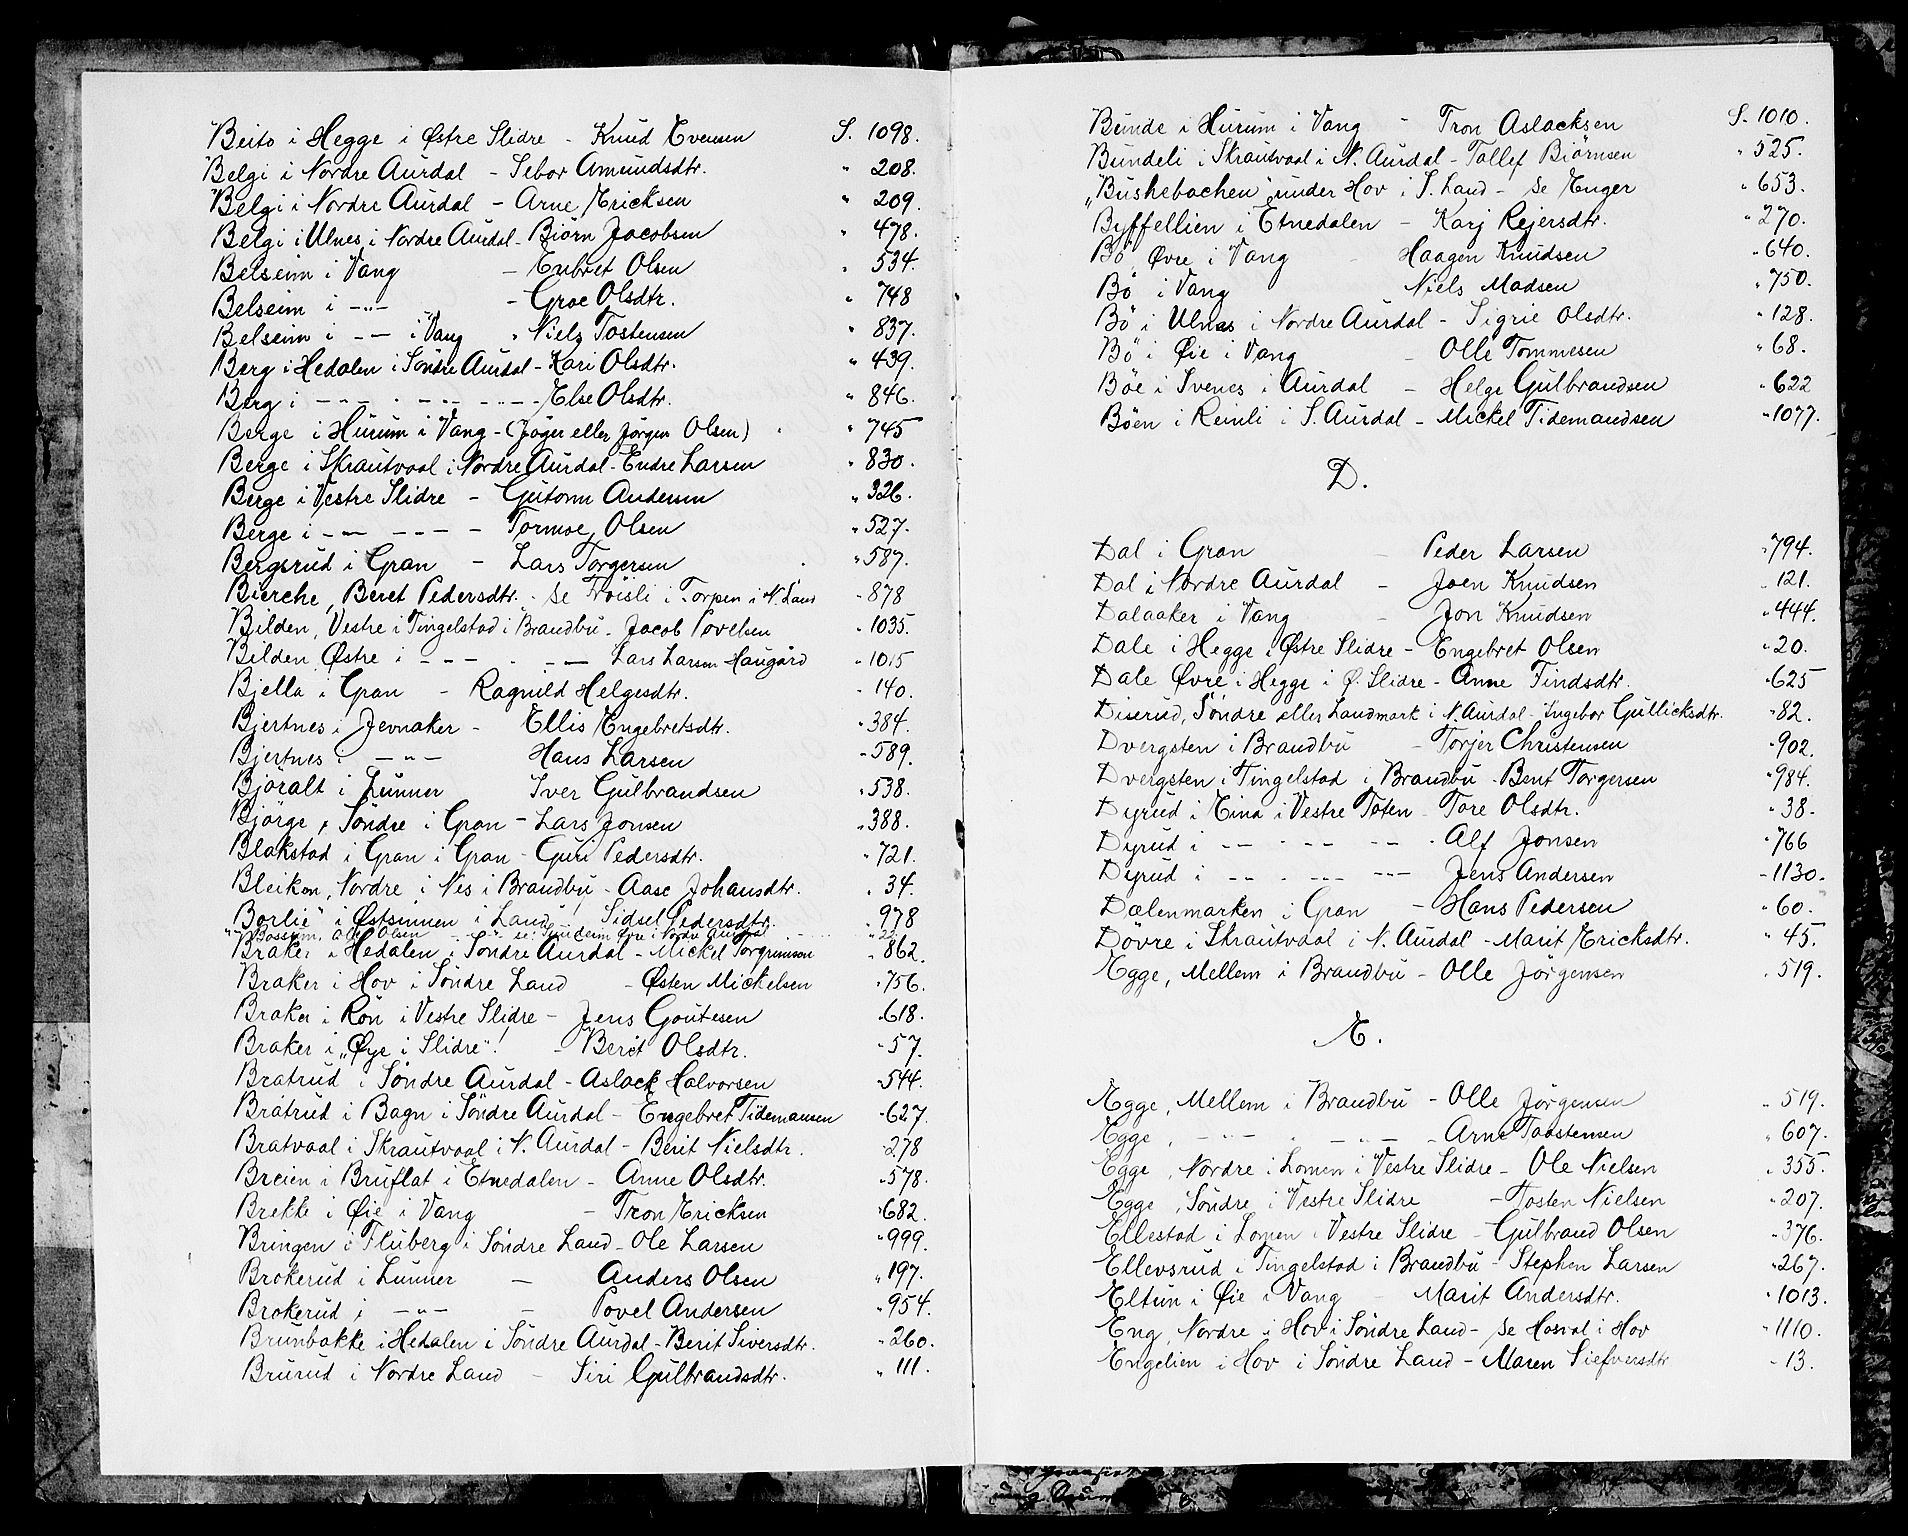 Beito i Hegge i Østre Slidre - Knud Evensen S. 1098.
Belgi i Nordre Aurdal - Sebor Amundsdtr. " 208.
Belgi i Nordre Aurdal - Arne Ericksen " 209.
Belgi i Ulnes i Nordre Aurdal - Biörn Jacobsen " 478.
Belseim i Vang - Enbret Olsen " 534.
Belseim i -"- - Groe Olsdtr. " 748
Belseim i -- i Vang " Niels Tostensen " 837.
Berg i Hedalen i Söndre Aurdal - Kari Olsdtr. " 439.
Berg i --- . --- --- Else Olsdtr. " 846.
Berge i Hurum i Vang - (Jöger eller Jörgen Olsen) " 745
Berge i Skrautvaal i Nordre Aurdal - Endre Larsen " 830.
Berge i Vestre Slidre - Gutorm Andersen " 326.
Berge i --- --- - Tormoe Olsen " 527.
Bergsrud i Gran - Lars Torgersen " 587.
Bierche, Beret Pedersdtr. - se Fröisli i Torpen i N. Land - 878
Bilden, Vestre i Tingelstad i Brandbu - Jacob Povelsen " 1035.
Bilden Østre i --- . --- Lars Larsen Haugård " 1015
Bjella i Gran - Ragnild Helgesdtr. - 140.
Bjertnes i Jevnaker - Ellis Engebretsdtr. " 384.
Bjertnes i -"- Hans Larsen - 589.
Björalt i Lunner Iver Gulbrandsen " 538.
Bjørge, Söndre i Gran - Lars Jonsen " 388.
Blakstad i Gran i Gran - Guri Pedersdtr. " 721.
Bleiken, Nordre i Nes i Brandbu - Aase Johansdtr. " 34.
Borlie" i Østsinnen i Land! Sidsel Pedersdtr. " 978
Braker i Hedalen i Söndre Aurdal - Mickel Torgrimson " 862.
Braker i Hov i Söndre Land - Østen Mickelsen " 756.
Braker i Røn i Vestre Slidre - Jens Goutesen " 618.
Braker i "Øye i Slidre"! - Berit Olsdtr. " 57.
Bratrud i Söndre Aurdal - Aslack Halvorsen " 544.
Bratrud i Bagn i Söndre Aurdal - Engebret Tidemansen - 627.
Bratvaal i Skrautvaal i N. Aurdal - Berit Nielsdtr. - 278
Breien i Bruflat i Etnedalen - Anne Olsdtr. " 578.
Brekke i Øie i Vang - Tron Ericksen " 682.
Bringen i Fluberg i Söndre Land - Ole Larsen " 999.
Brokerud i Lunner - Anders Olsen " 197.
Brokerud i -"- - Povel Andersen " 954.
Brunbakke i Hedalen i Söndre Aurdal - Berit Siversdtr. " 260.
Brurud i Nordre Land - Siri Gulbrandsdtr. " 111.
Bunde i Hurum i Vang - Tron Aslacksen S. 1010.
Bundeli i Skrautvaal i N. Aurdal - Tollef Biörnsen " 525.
"Bushebachen" under Hov i S. Land - Se Enger " 653.
Byffellien i Etnedalen - Karj Rejersdtr. " 270.
Bö Øvre i Vang - Haagen Knudsen " 640.
Bö i Vang Niels Madsen " 750.
Bö i Ulnes i Nordre Aurdal - Sigrie Olsdtr. " 128.
Bö i Øie i Vang - Olle Tommesen " 68.
Böe i Svenes i Aurdal - Helge Gulbrandsen " 622
Böen i Reinli i S. Aurdal - Mickel Tidemandsen " 1077.
D.
Dal i Gran - Peder Larsen " 794.
Dal i Nordre Aurdal - Joen Knudsen " 121.
Dalaaker i Vang - Jon Knudsen " 444.
Dale i Hegge i Østre Slidre - Engebret Olsen " 20.
Dale Øvre i Hegge i Ø. Slidre - Anne Findsdtr. " 625
Diserud, Söndre eller Landmark i N. Aurdal - Ingebor Gullicksdtr. " 82.
Dvergsten i Brandbu - Torjer Christensen " 902.
Dvergsten i Tingelstad i Brandbu - Bent Torgersen " 984.
Dyrud i Eina i Vestre Toten - Tore Olsdtr. " 38.
Dyrud i -- - -- -- . Alf Jonsen " 766
Dyrud i -- . --- --- Jens Andersen - 1130.
Dælenmarken i Gran - Hans Pedersen " 60.
Dövre i Skrautvaal i N. Aurdal - Marit Ericksdtr. " 45.
Egge, Mellem i Brandbu - Olle Jörgensen " 519.
E.
Egge, Mellem i Brandbu - Olle Jörgensen " 519.
Egge, -"- " -"- - Arne Taastensen " 607.
Egge, Nordre i Lomen i Vestre Slidre - Ole Nielsen " 355.
Egge, Söndre i Vestre Slidre - Tosten Nielsen " 207.
Ellestad i Lomen i Vestre Slidre - Gulbrand Olsen " 376.
Ellevsrud i Tingelstad i Brandbu - Stephen Larsen " 267.
Eltun i Øie i Vang - Marit Andersdtr. " 1013.
Eng, Nordre i Hov i Söndre Land - Se Hasval i Hov " 1110.
Engelien i Hov i Söndre Land - Maren Siefversdtr - 13.